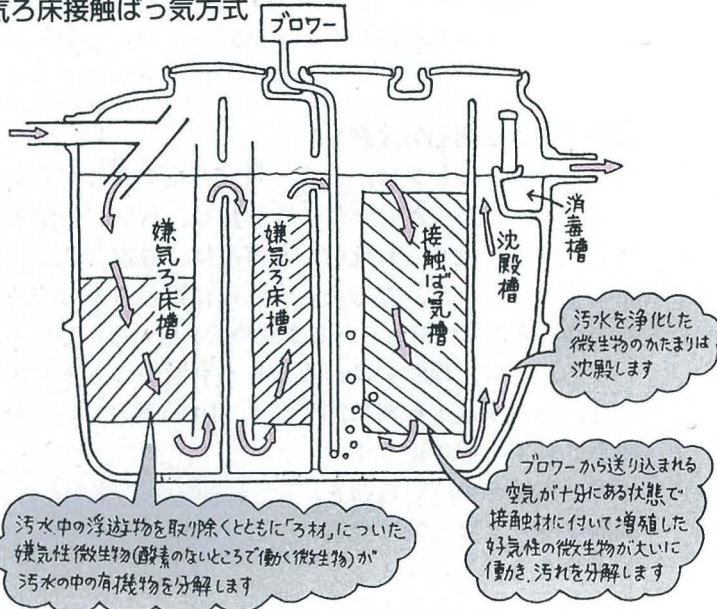 気ろ床接触ばっ気方式
ブロワー
嫌気ろ床槽
嫌気ろ床槽
接触ばっ気槽
沈殿槽
消毒槽
汚水を浄化した
微生物のかたまりは
沈殿します
ブロワーから送り込まれる
空気が十分にある状態で
接触材に付いて増殖した
好気性の微生物が大いに
働き、汚れを分解します
汚水中の浮遊物を取り除くとともに「ろ材」についた
嫌気性微生物(酸素のないところで働く微生物)が
汚水の中の有機物を分解します